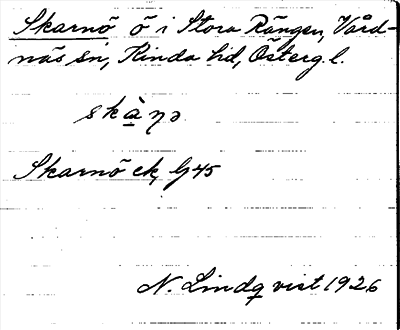 Skarnö ö i Stora Rängen, Vård-
näs sn, Kinda hd, Österg. l.
skànə
Skarnö ek G45
N. Lindqvist 1926